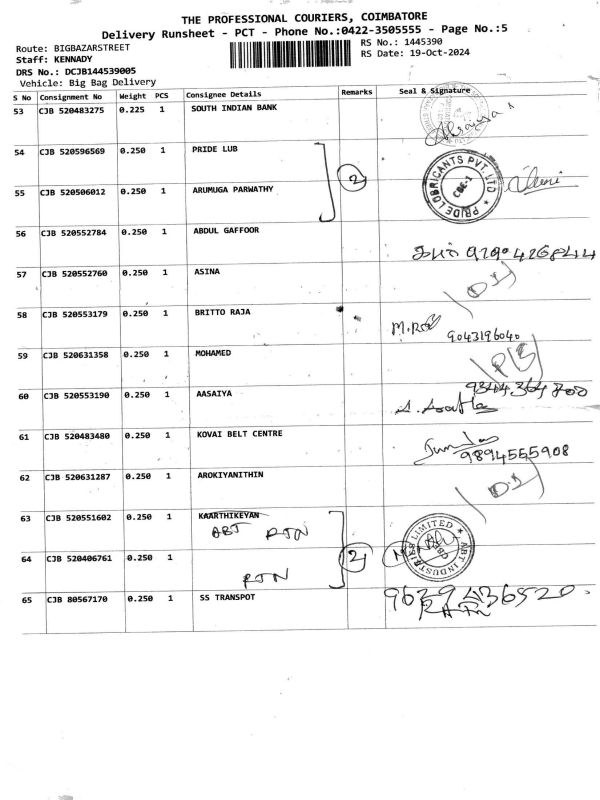 THE PROFESSIONAL COURIERS, COIMBATORE
Delivery Runsheet - PCT - Phone No.:0422-3505555 - Page No.:5
Route: BIGBAZARSTREET
RS No.: 1445390
Staff: KENNADY
RS Date: 19-Oct-2024
DRS No.: DCJB144539005
Vehicle: Big Bag Delivery
S No Consignment No Weight PCS Consignee Details Remarks Seal & Signature
53 CJB 520483275 0.225 1 SOUTH INDIAN BANK
54 CJB 520596569 0.250 1 PRIDE LUB
2
PRIDE LUBRICANTS PVT. LTD
CBE-1
55 CJB 520506012 0.250 1 ARUMUGA PARWATHY
56 CJB 520552784 0.250 1 ABDUL GAFFOOR
57 CJB 520552760 0.250 1 ASINA
58 CJB 520553179 0.250 1 BRITTO RAJA
9043196040
59 CJB 520631358 0.250 1 MOHAMED
9344364800
60 CJB 520553190 0.250 1 AASAIYA
61 CJB 520483480 0.250 1 KOVAI BELT CENTRE
9894555908
62 CJB 520631287 0.250 1 AROKIYANITHIN
63 CJB 520551602 0.250 1 KAARTHIKEYAN
ABT RTN
2
ABT INDUSTRIES LIMITED
64 CJB 520406761 0.250 1
RTN
65 CJB 80567170 0.250 1 SS TRANSPOT